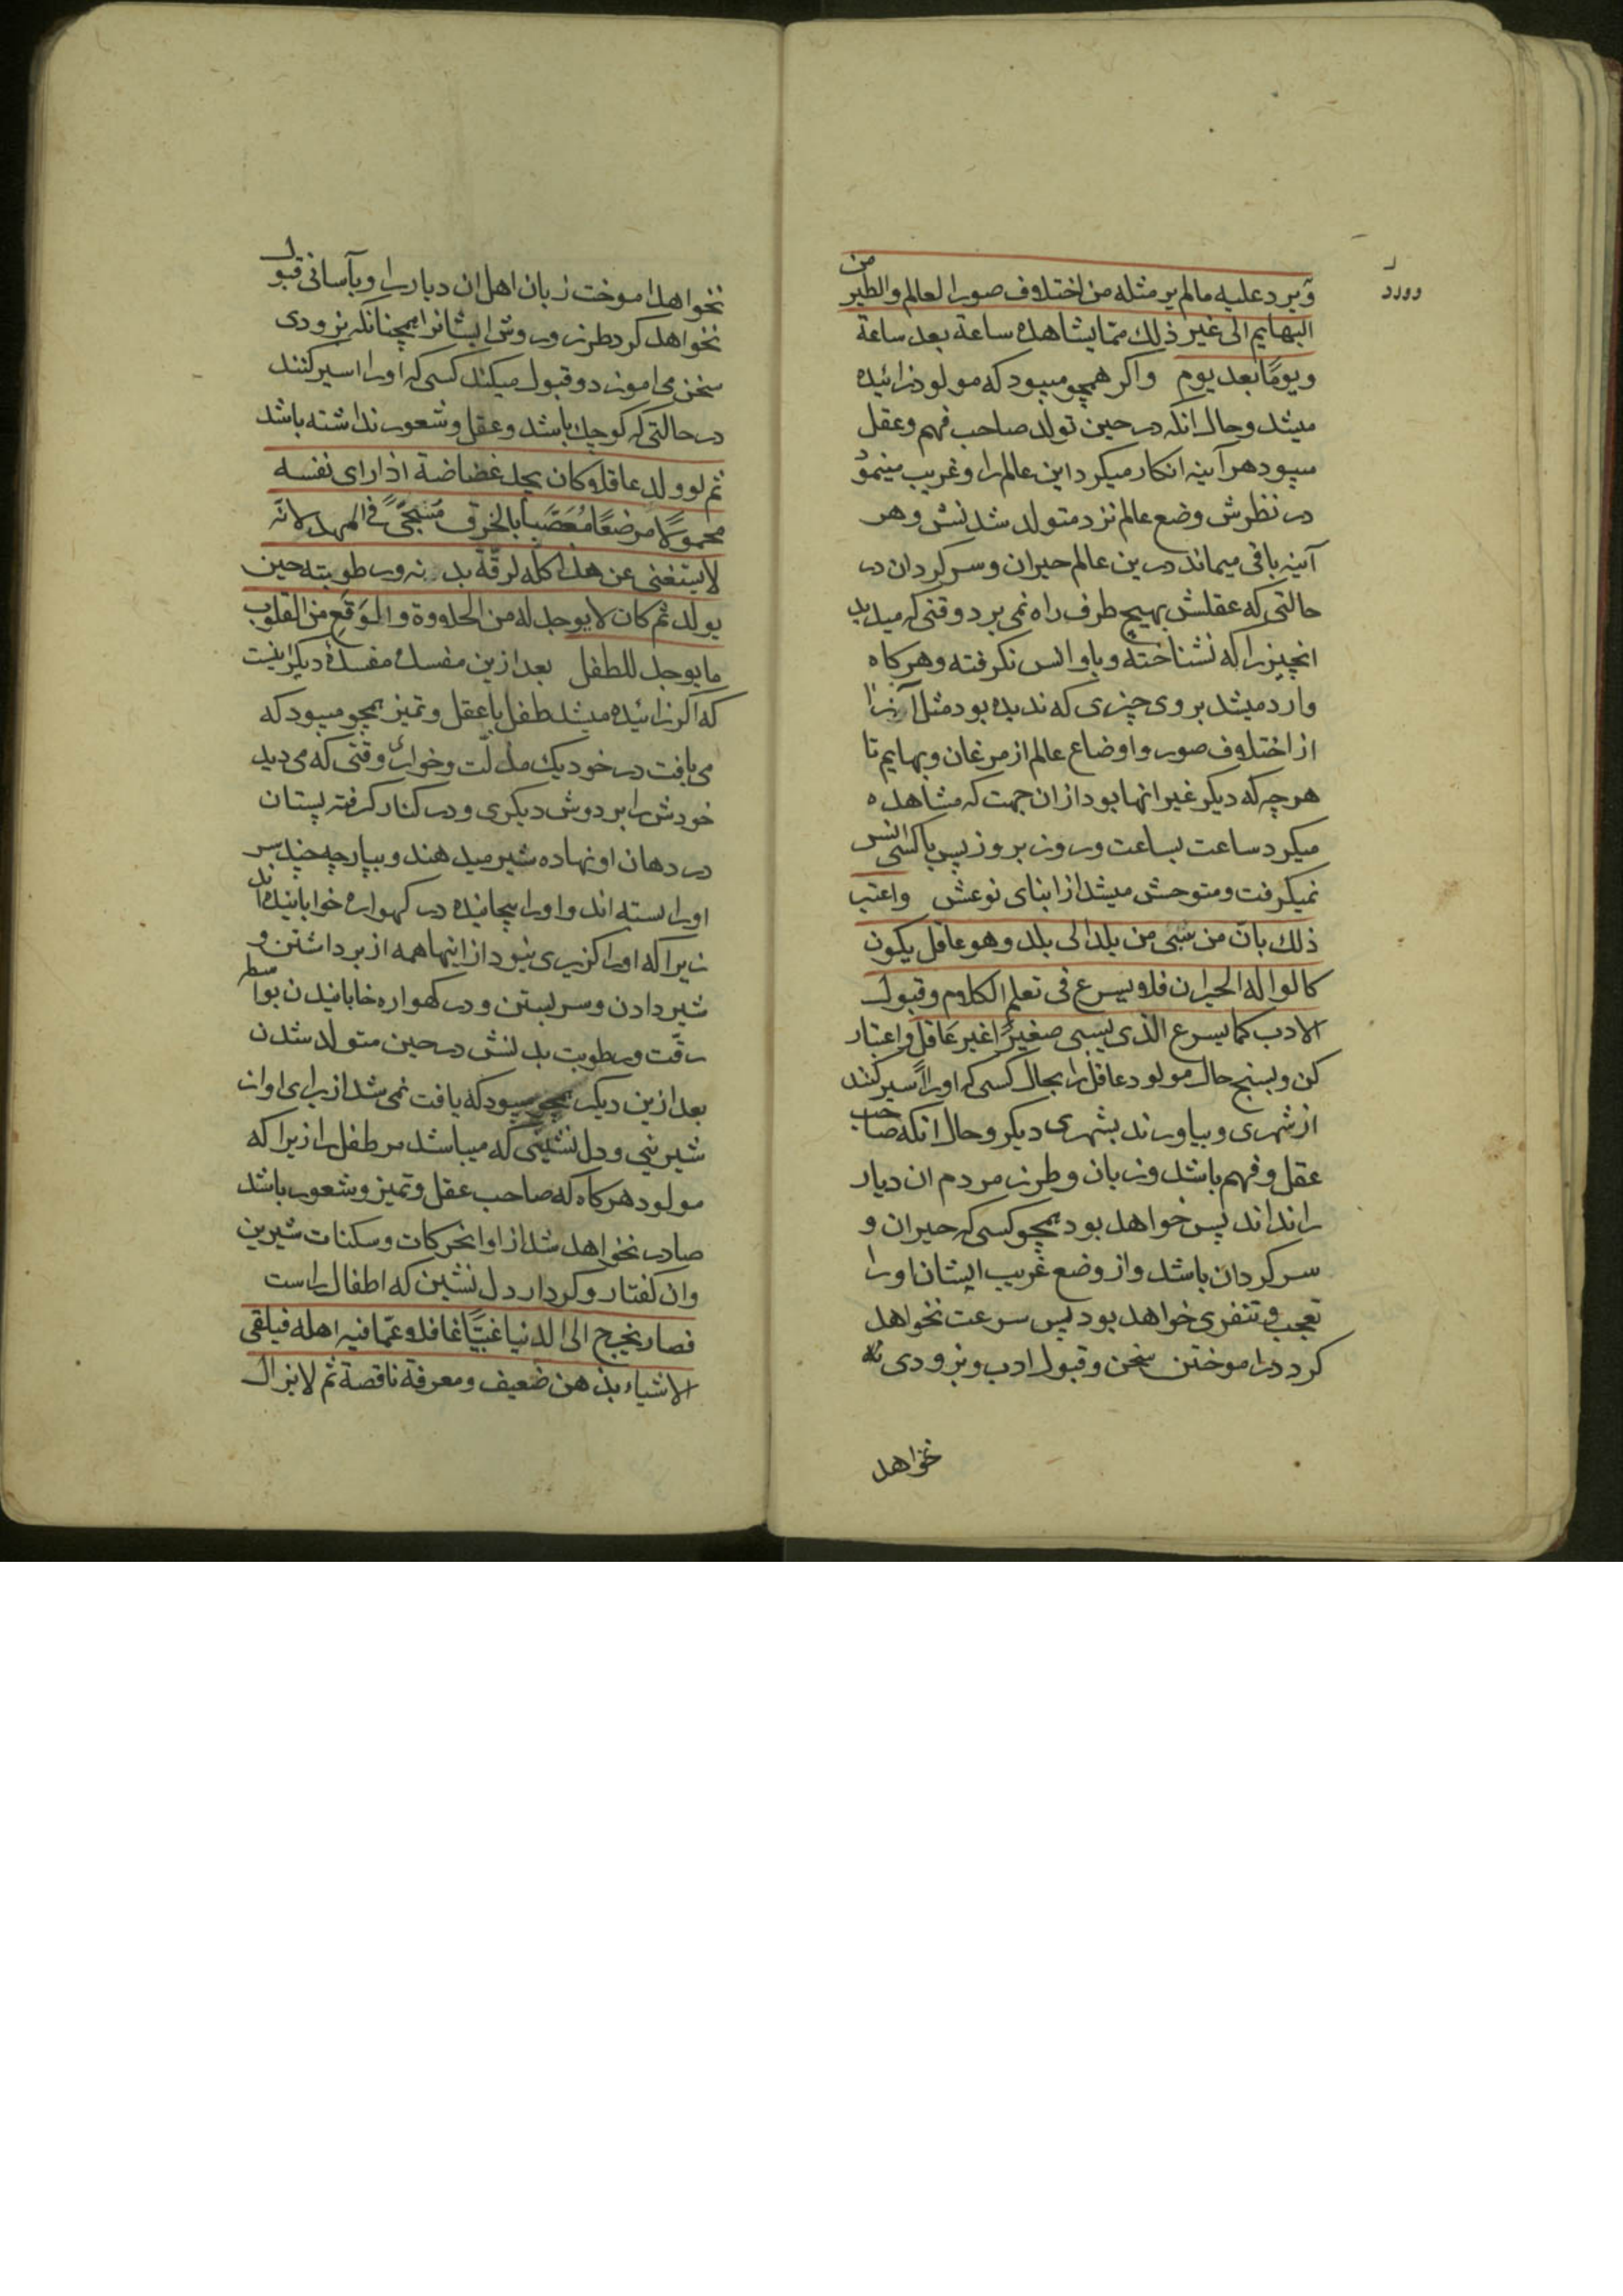 و یرد علیه مالم یر مثله من اختلاف صور العالم والطیر من
البهایم الی غیر ذلك ممّا یشاهده ساعة بعد ساعة
و یومًا بعد یوم واکر همچو میبود که مولود زائیده
میشد وحال انکه در حین تولد صاحب فهم وعقل
میبود هر آینه انکار میکرد این عالم را وغریب مینمود
در نظرش وضع عالم نزد متولد شدنش وهر
آینه باقی میماند درین عالم حیران و سر کردان در
حالتی که عقلش بهیچ طرف راه نمی برد وقتی که میدید
انچیز را که نشناخته وباو انس نکرفته وهرکاه
وارد میشد بر وی چیزی که ندیده بود مثل آنرا
از اختلاف صور واوضاع عالم از مرغان وبهایم تا
هر چه که دیکر غیر انها بود از ان جهت که مشاهده
میکرد ساعت بساعت وروز بروز پس با کسی انس
نمیکرفت ومتوحش میشد از ابنای نوعش واعتبر
ذلك بانّ من سُبی من بلد الی بلد وهو عاقل یکون
کالواله الحیران فلا یسرع فی تعلم الکلام وقبول
الادب کما یسرع الذی یسبی صغیرًا غیر عاقل واعتبار
کن وبسنج حال مولود عاقل را بحال کسی که اورا اسیر کنند
از شهری وبیاورند بشهری دیکر وحال انکه صاحب
عقل وفهم باشد وزبان وطرز مردم ان دیار
را نداند پس خواهد بود همچو کسی که حیران و
سر کردان باشد واز وضع غریب ایشان اورا
تعجب وتنفری خواهد بود پس سرعت نخواهد
کرد در اموختن سخن وقبول ادب وبزودی
نخواهد
نخواهد اموخت زبان اهل ان دیار را وبآسانی قبول
نخواهد کرد طرز وروش ایشانرا همچنانکه بزودی
سخن می اموزد وقبول میکند کسی که اورا اسیر کنند
در حالتی که کوچك باشد وعقل وشعور نداشته باشد
ثم لو ولد عاقلا کان یجد غضاضة اذا رای نفسه
محمولًا مرضعًا مُعَصَّبًا بالخرق مُسَجًّی فی المهد لانّه
لا یستغنی عن هذا کله لرقّة بدنه ورطوبته حین
یولد ثم کان لا یوجد له من الحلاوة والمَوقع من القلوب
ما یوجد للطفل بعد ازین مفسده مفسدهٔ دیکر اینست
که اکر زائیده میشد طفل با عقل وتمیز همچو میبود که
می یافت در خود یك مذلّت وخوارئ وقتی که می دید
خودش را بر دوش دیکری ودر کنار کرفته پستان
در دهان او نهاده شیر میدهند وبپارچه چند سر
اورا بسته اند واورا پیچانیده در کهواره خوابانیده اند
زیرا که اورا کزیری نبود از اینها همه از برداشتن و
شیر دادن وسر بستن ودر کهواره خابانیدن بواسطه
رقّت ورطوبت بدنش در حین متولد شدن
بعد ازین دیکر همچو میبود که یافت نمی شد از برای او ان
شیرینی ودل نشینی که میباشد مر طفل را زیرا که
مولود هرکاه که صاحب عقل وتمیز وشعور باشد
صادر نخواهد شد از او انحرکات وسکنات شیرین
وان کفتار وکردار دل نشین که اطفال راست
فصار یخرج الی الدنیا غبیًّا غافلا عمّا فیه اهله فیلقی
الاشیاء بذهن ضعیف ومعرفة ناقصة ثم لا یزال